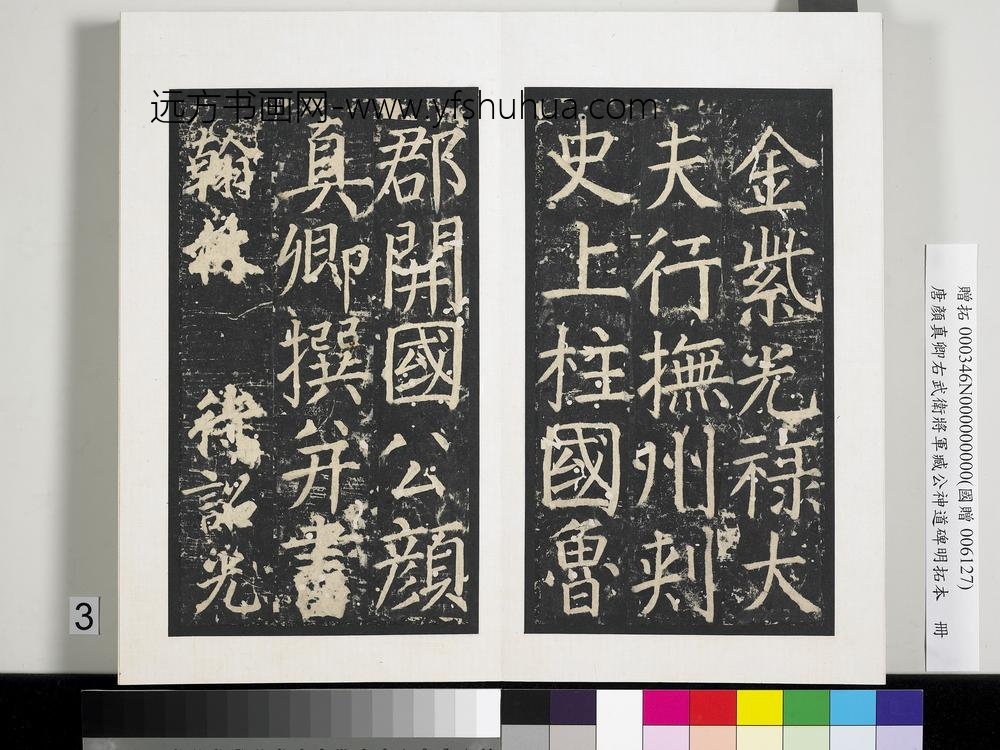 远方书画网-www.yfshuhua.com
金紫光祿大
夫行撫州刺
史上柱國魯
郡開國公顏
真卿撰并書
翰林待詔光
贈拓 000346N000000000(國贈 006127)
唐顏真卿右武衛將軍臧公神道碑明拓本 冊
3